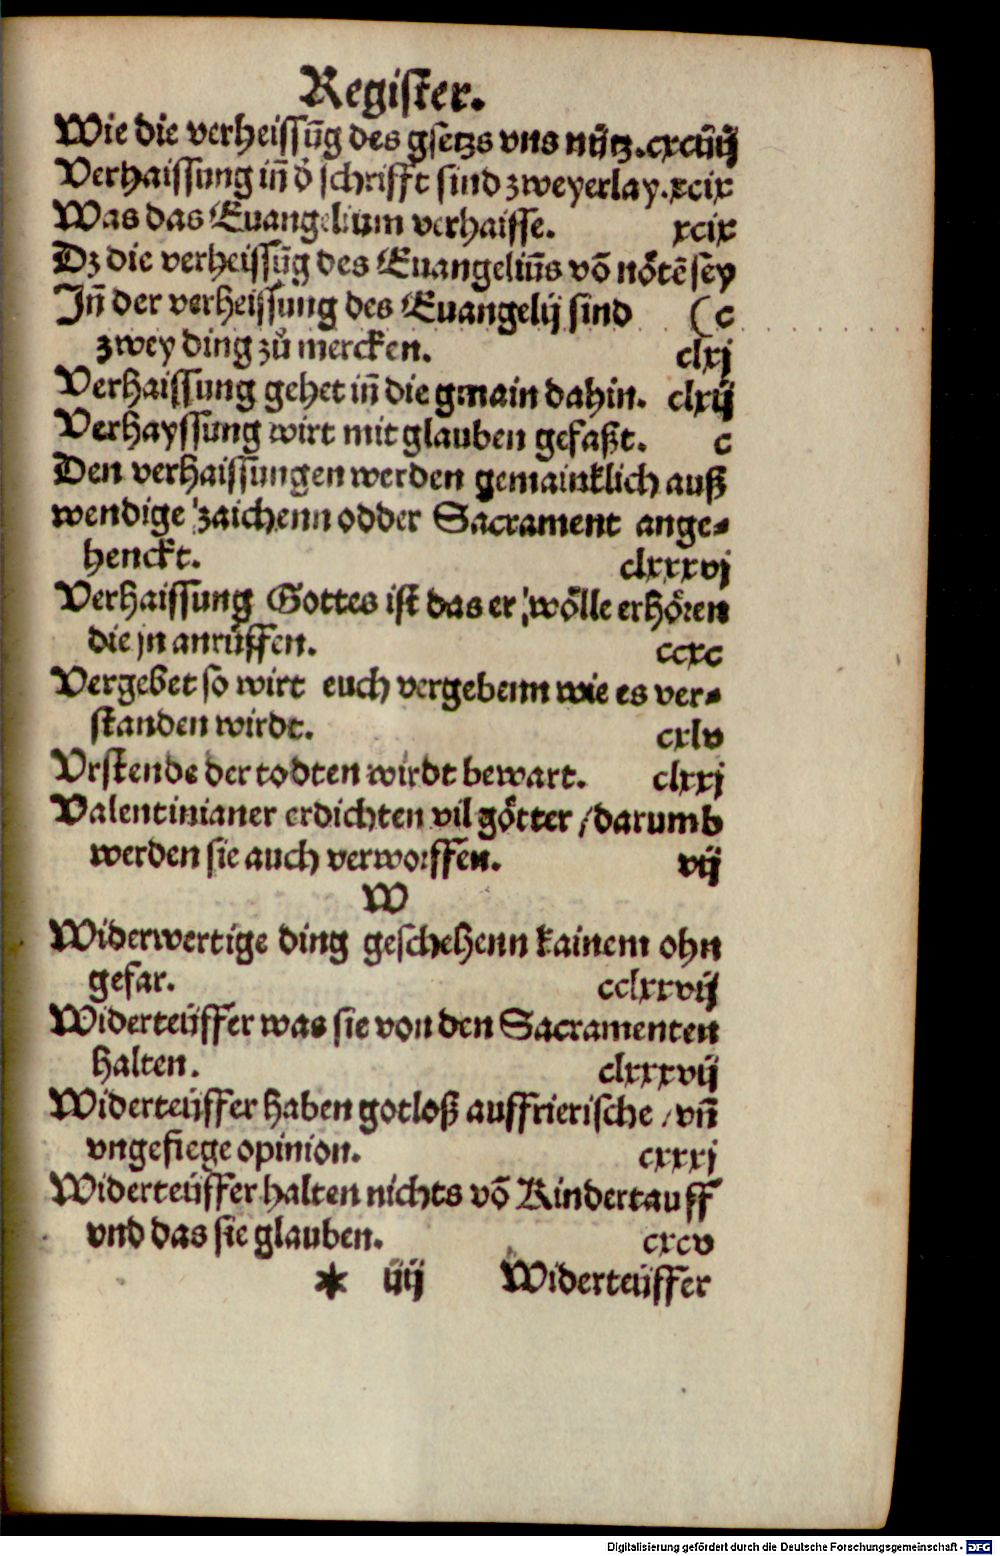 Register.
Wie die verheissūg des gsetzs vns nütz. cxciiij
Verhaissung iñ d̓ schrifft sind zweyerlay. xcix
Was das Euangelium verhaisse. xcix
Dz die verheissūg des Euangeliūs vō nötē sey
Iñ der verheissung des Euangelij sind (c
zwey ding zů mercken. clxj
Verhaissung gehet iñ die gmain dahin. clxij
Verhayssung wirt mit glauben gefaßt. c
Den verhaissungen werden gemainklich auß
wendige zaichenn odder Sacrament ange⸗
henckt. clxxxvj
Verhaissung Gottes ist das er wölle erhören
die jn anrüffen. ccxc
Vergebet so wirt euch vergebenn wie es ver⸗
standen wirdt. cxlv
Vrstende der todten wirdt bewart. clxxj
Valentinianer erdichten vil götter / darumb
werden sie auch verworffen. vij
W
Widerwertige ding geschehenn kainem ohn
gefar. cclxxvij
Widerteüffer was sie von den Sacramenten
halten. clxxxvij
Widerteüffer haben gotloß auffrierische / vñ
vngefiege opinion. cxxxj
Widerteüffer halten nichts vō Kindertauff
vnd das sie glauben. cxcv
* iiij Widerteüffer
Digitalisierung gefördert durch die Deutsche Forschungsgemeinschaft - DFG